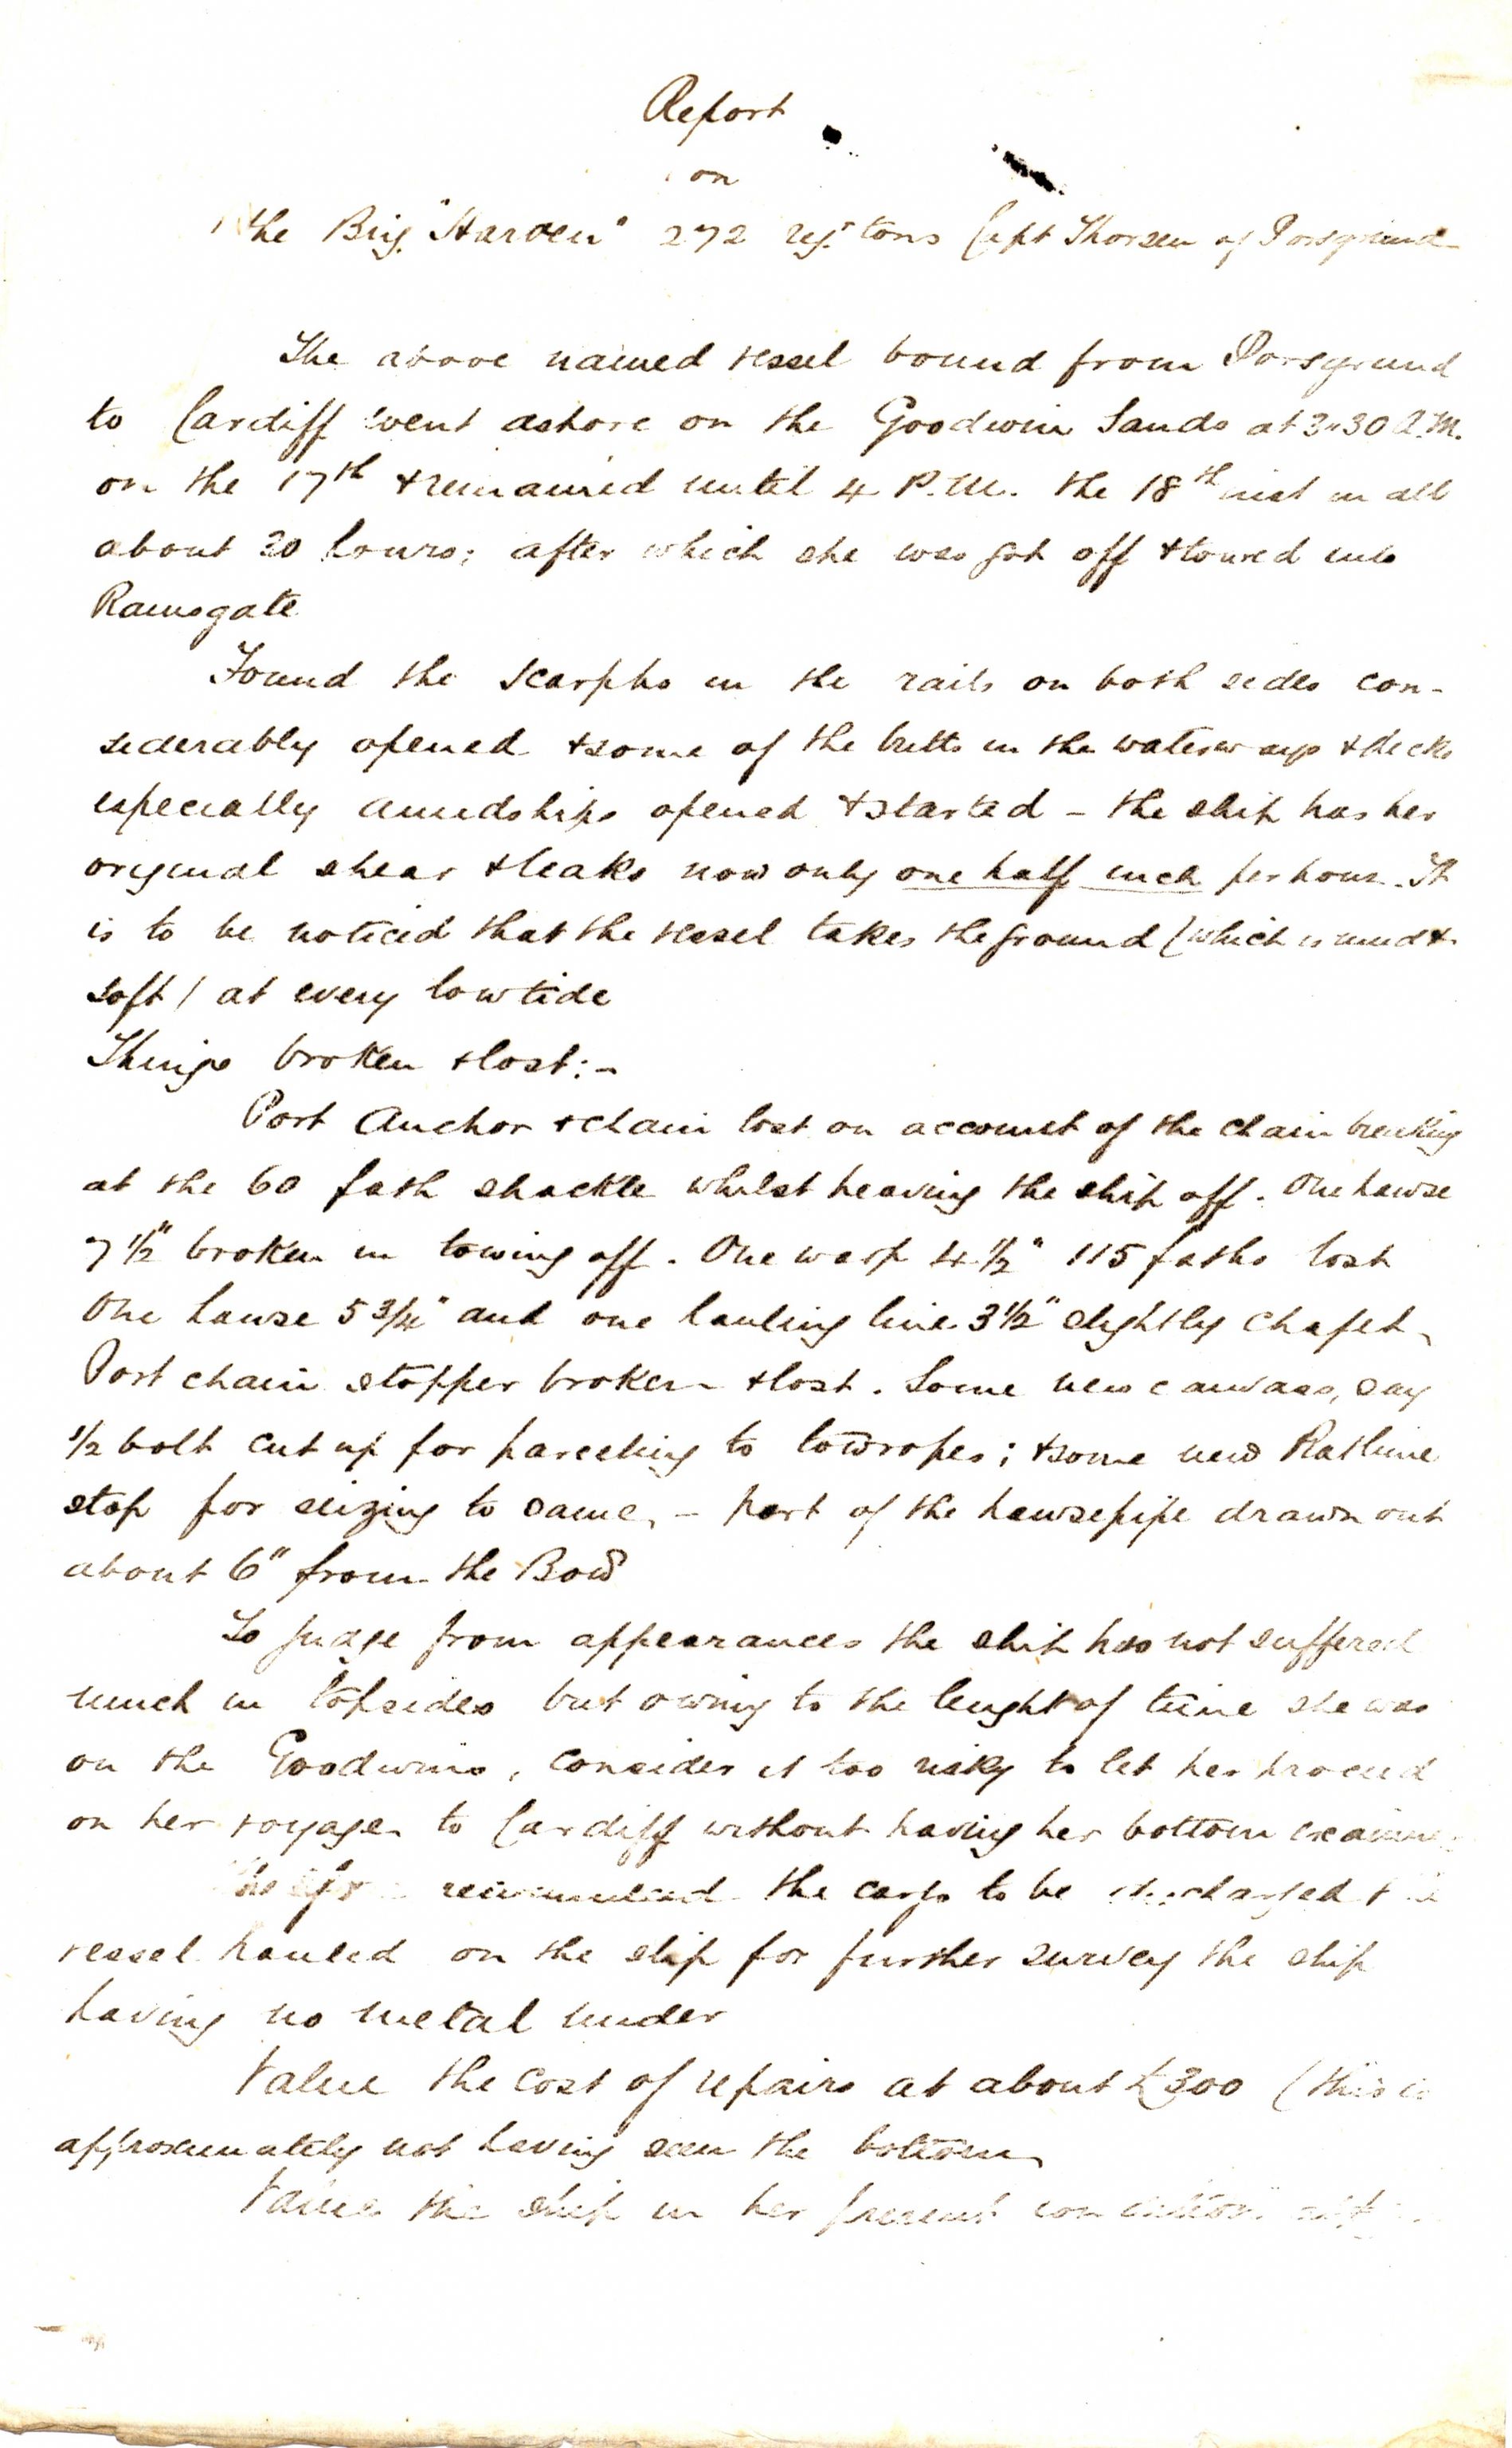 Report
on
the Brig. "Harven" 272 reg. tons Capt Thorsen of Porsgrund
The above named vessel bound from Porsgrund
to Cardiff went ashore on the Goodwin Sands at 3"30 A.M.
on the 17th & remained until 4 P.M. the 18th inst in all
about 30 hours; after which she was got off & towed into
Ramsgate
Found the scarphs in the rails on both sides con-
siderably opened & some of the butts in the waterways & decks
especially amidships opened & started - the ship has her
original shear & leaks now only one half inch per hour. It
is to be noticed that the vessel takes the ground (which is mud &
soft) at every low tide
Things broken & lost:-
Port Anchor & chain lost on account of the chain breaking
at the 60 fath shackle whilst heaving the ship off. One hawse
7 1/2" broken in towing off. One warp 4 1/2" 115 faths lost
One hawse 5 3/4" and one hauling line 3 1/2" slightly chafed,
Port chain stopper broken & lost. Some new canvass, say
1/2 bolt cut up for parceling to towropes; & some new Ratline
stop for seizing to same, - part of the hawsepipe drawn out
about 6" from the Bow
To judge from appearances the ship has not suffered
much in topsides but owing to the lenght of time she was
on the Goodwins, consider it too risky to let her proceed
on her voyage to Cardiff without having her bottom examined
recommend the cargo to be discharged &
vessel hauled on the slip for further survey the ship
having no metal under
Value the cost of repairs at about £300 (this is
approximately not having seen the bottom
Value the ship in her present condition